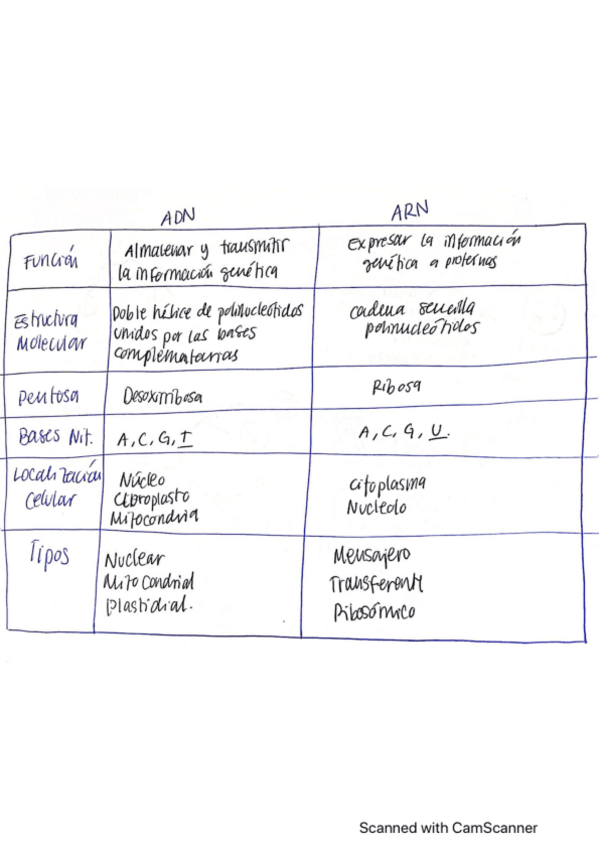 ADN
ARN
Función
Almacenar y transmitir
la información genética
Expresar la información
genética a proteínas
Estructura
Molecular
Doble hélice de polinucleótidos
unidos por las bases
complementarias
cadena sencilla
polinucleótidos
Pentosa
Desoxirribosa
Ribosa
Bases Nit.
A, C, G, T
A, C, G, U.
Localización
Celular
Núcleo
Cloroplasto
Mitocondria
Citoplasma
Nucleolo
Tipos
Nuclear
Mitocondrial
Plastidial.
Mensajero
Transferente
Ribosómico
Scanned with CamScanner